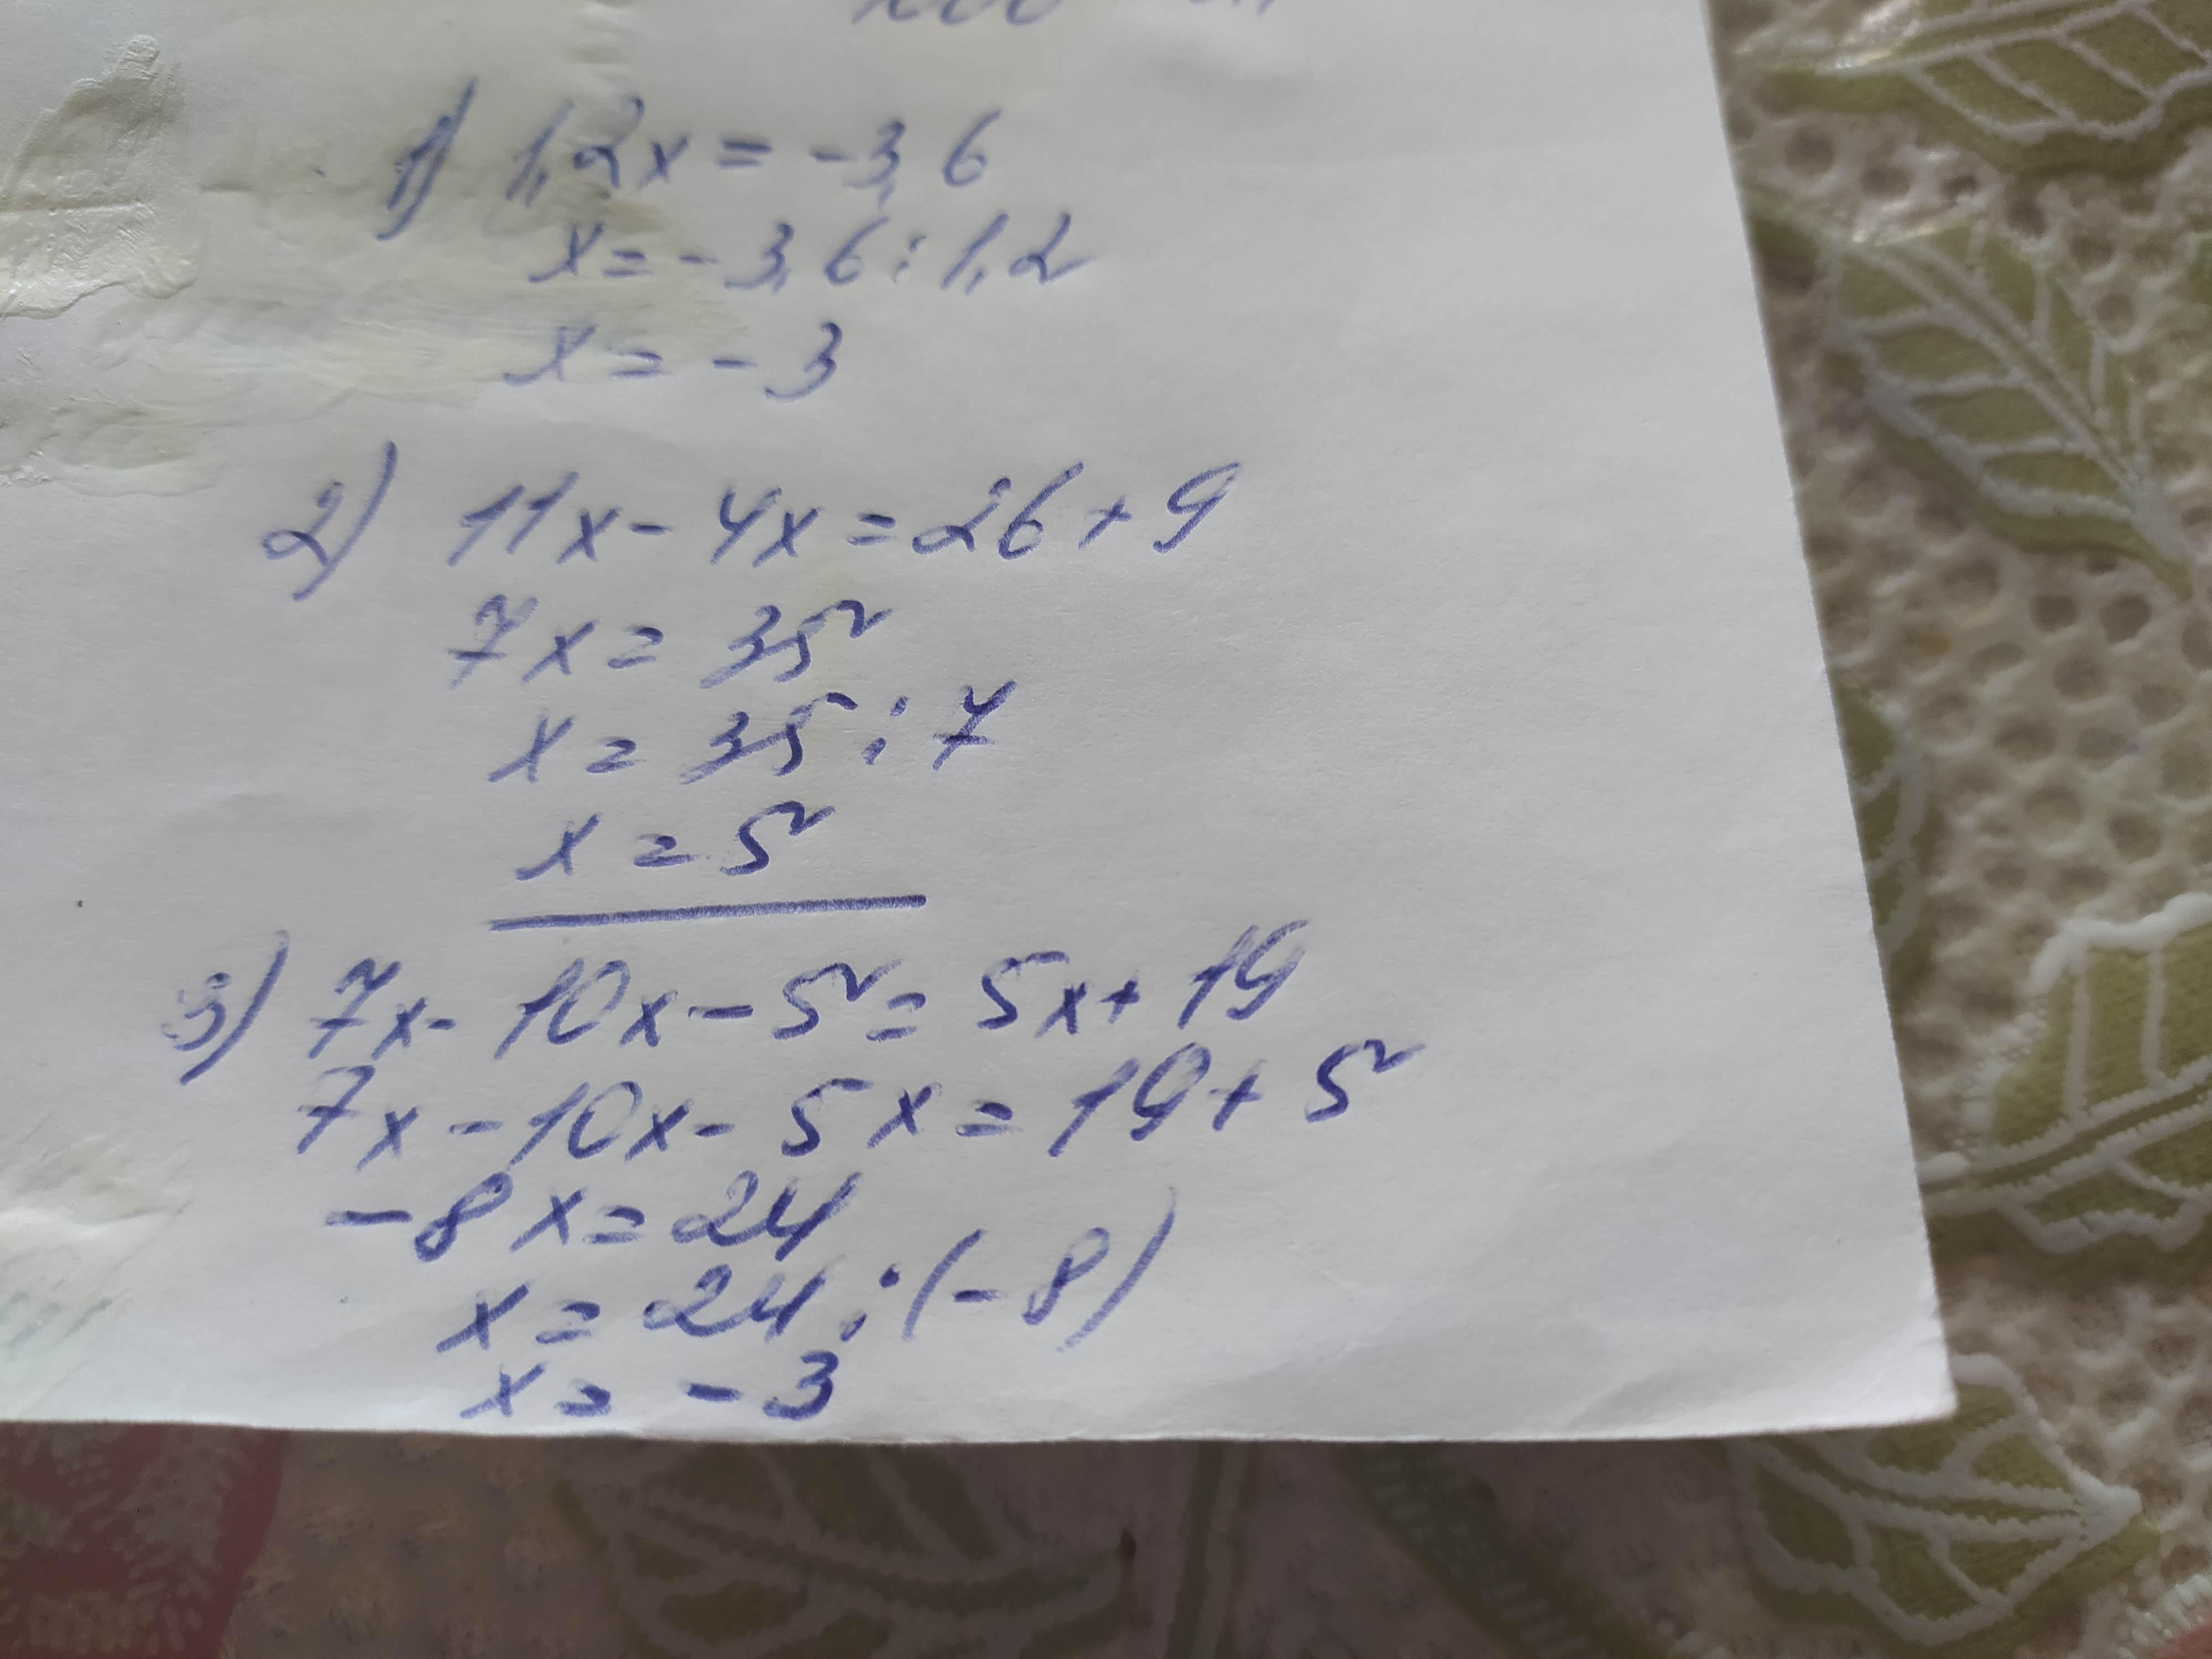 1) 1,2x = -3,6
x = -3,6 : 1,2
x = -3
2) 11x - 4x = 26 + 9
7x = 35
x = 35 : 7
x = 5
3) 7x - 10x - 5 = 5x + 19
7x - 10x - 5x = 19 + 5
-8x = 24
x = 24 : (-8)
x = -3